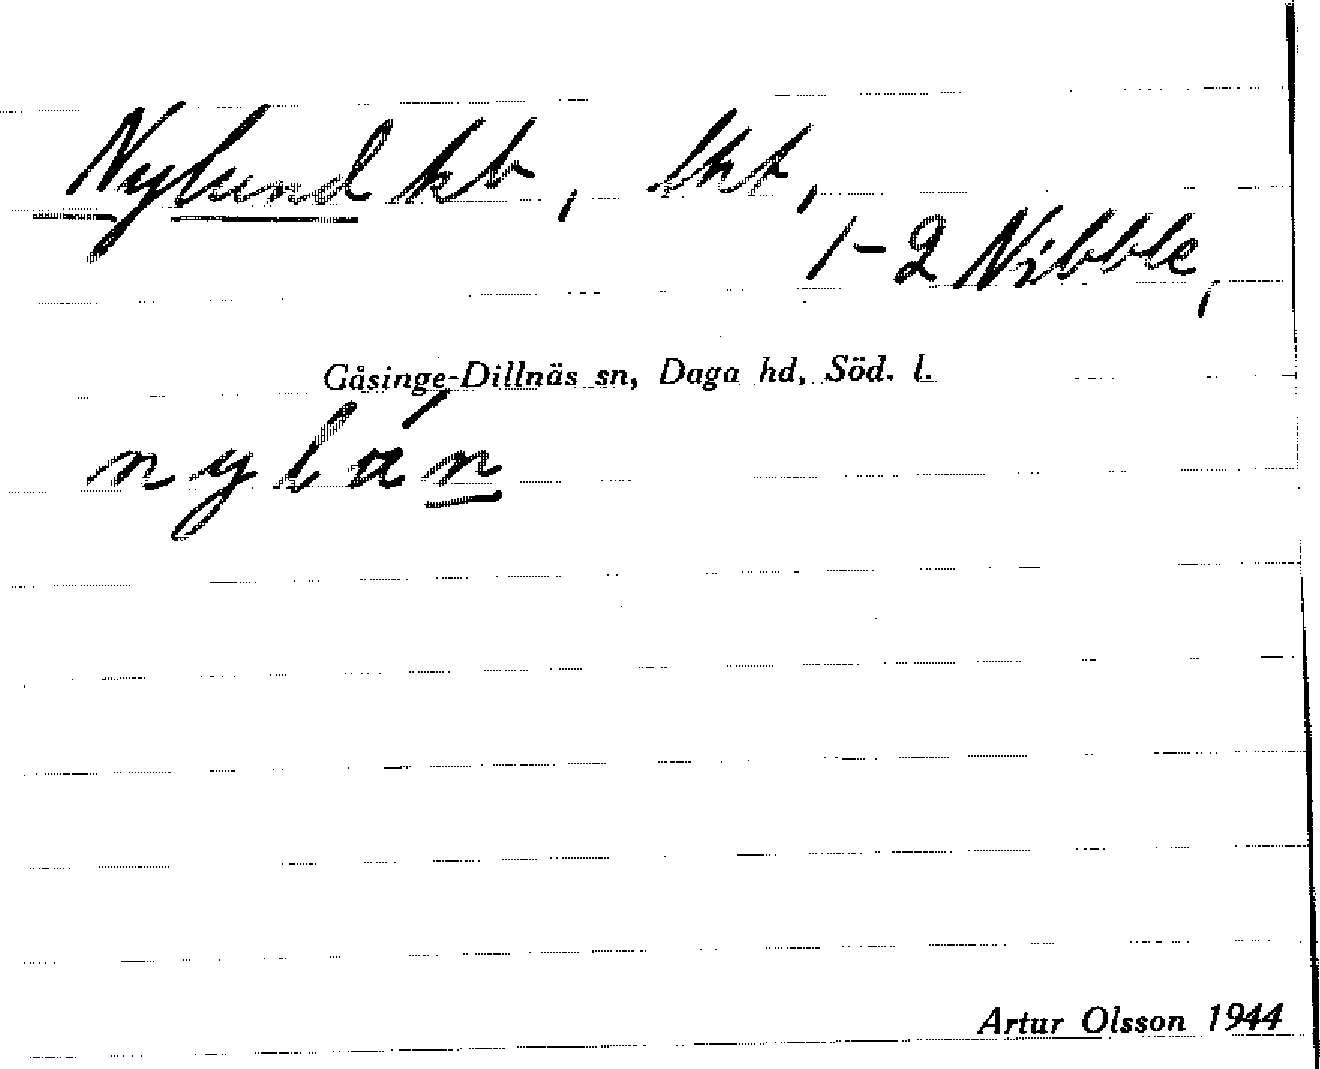 Nylund kb, lht,
1-2 Nibble,
Gåsinge-Dillnäs sn, Daga hd, Söd. l.
Artur Olsson 1944